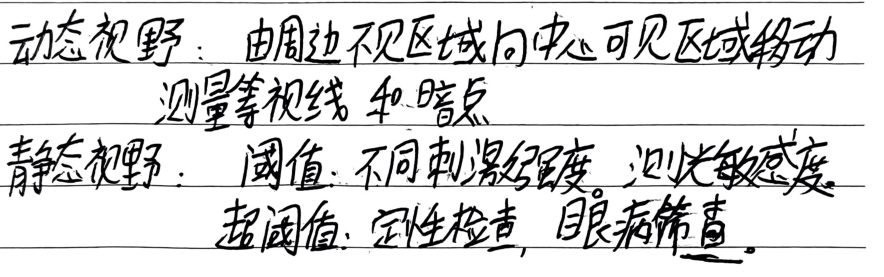 动态视野：由周边不见区域向中心可见区域移动
测量等视线和暗点
静态视野：阈值：不同刺激强度。测光敏感度。
超阈值：定性检查，眼病筛查。